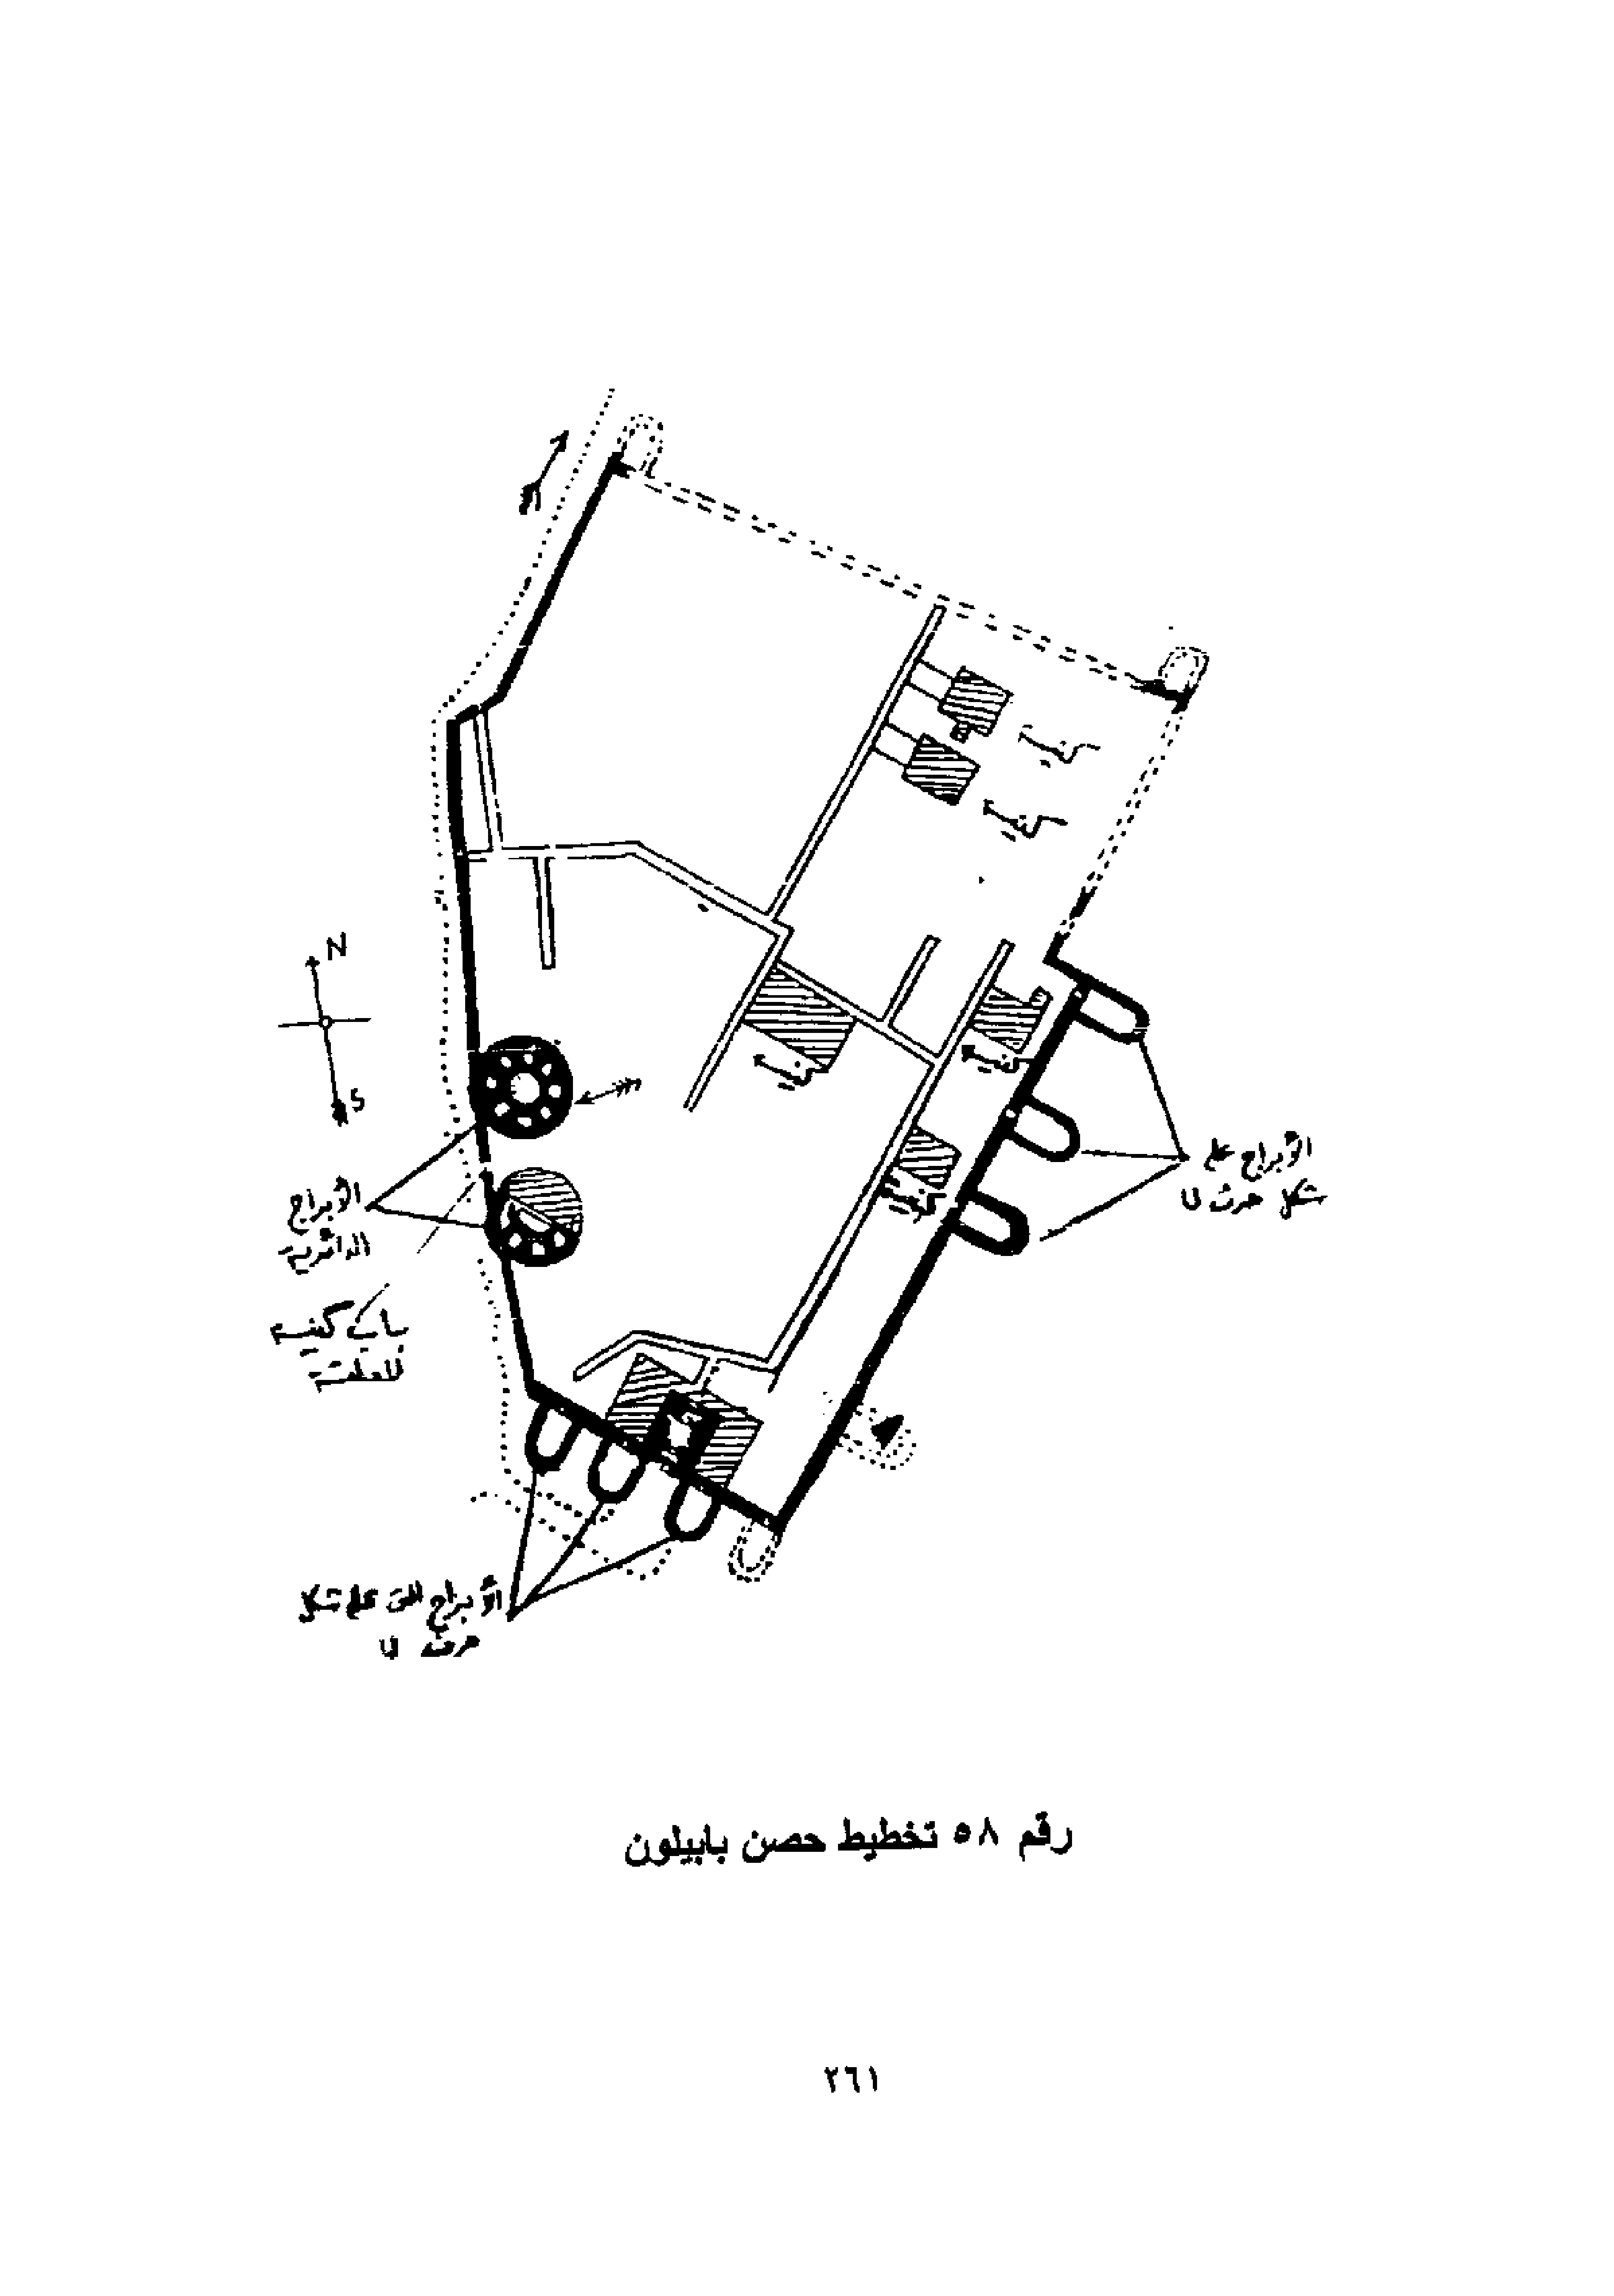 N
كنيسة
كنيسة
كنيسة
كنيسة
كنيسة
S
الأبراج على
شكل حرف U
الأبراج
الدائرية
باب كنيسة
المعلقة
الأبراج التى على شكل
حرف U
رقم ٥٨ تخطيط حصن بابيلون
٢٦١